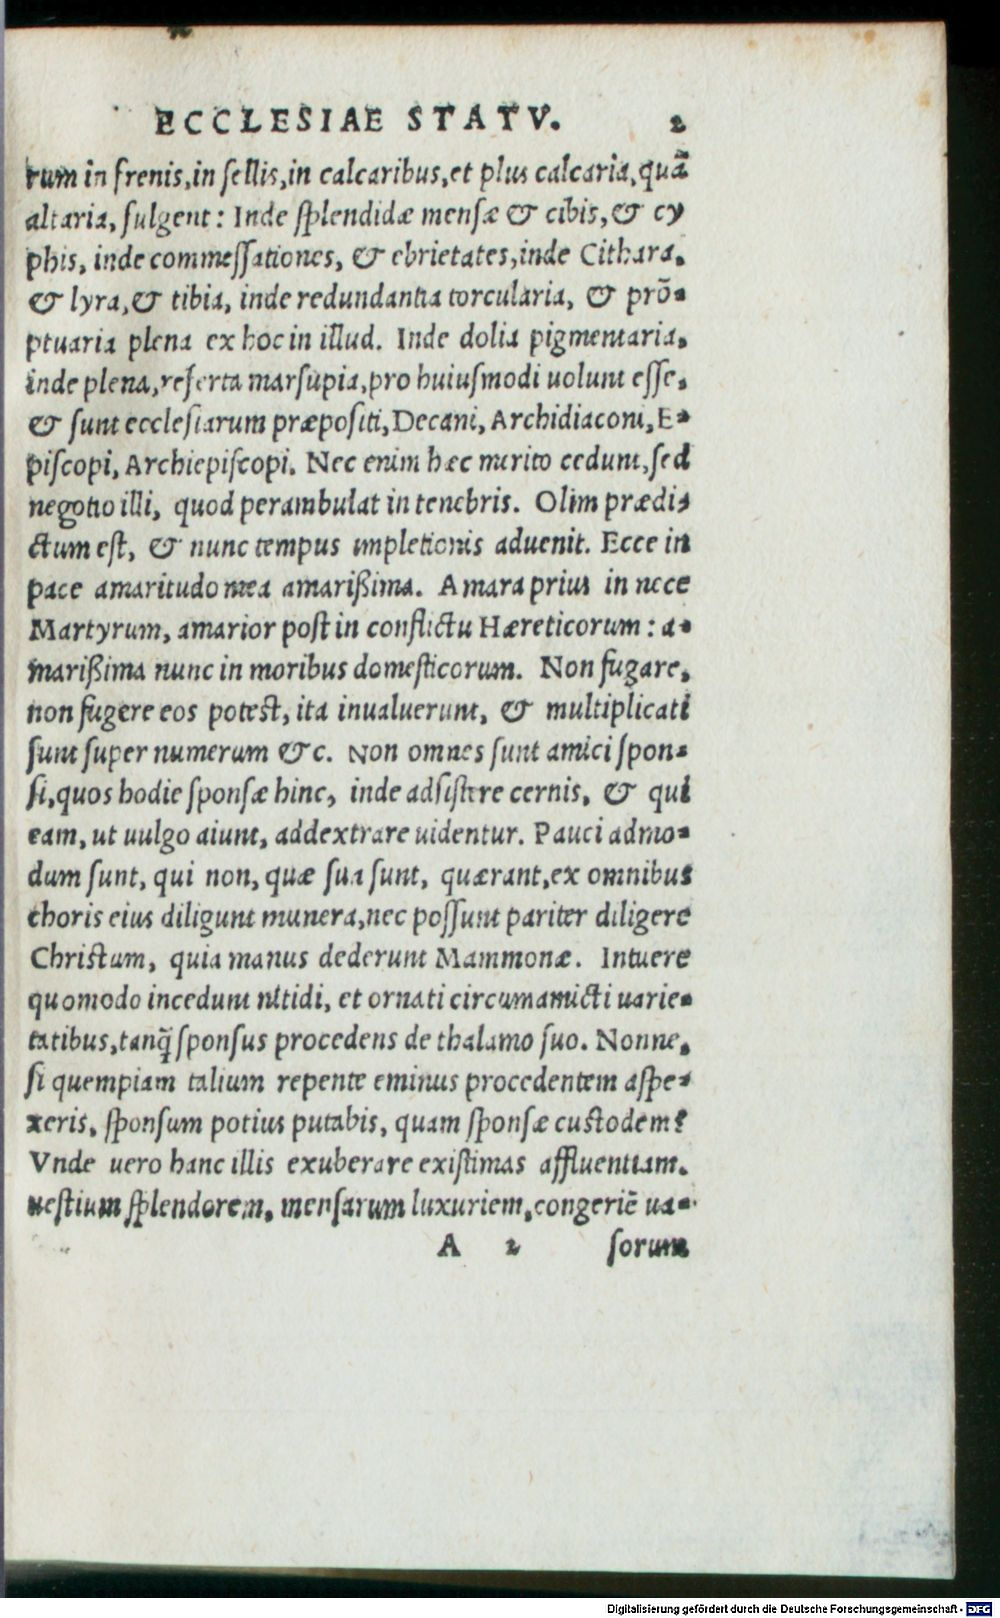 ECCLESIAE STATV. 2
rum in frenis, in sellis, in calcaribus, et plus calcaria, quã
altaria, fulgent: Inde splendidæ mensæ & cibis, & cy
phis, inde commessationes, & ebrietates, inde Cithara,
& lyra, & tibia, inde redundantia torcularia, & prõ-
ptuaria plena ex hoc in illud. Inde dolia pigmentaria,
inde plena, referta marsupia, pro huiusmodi uolunt esse,
& sunt ecclesiarum præpositi, Decani, Archidiaconi, E-
piscopi, Archiepiscopi. Nec enim hæc mirito cedunt, sed
negotio illi, quod perambulat in tenebris. Olim prædi-
ctum est, & nunc tempus impletionis aduenit. Ecce in
pace amaritudo mea amarißima. Amara prius in nece
Martyrum, amarior post in conflictu Hæreticorum: a-
marißima nunc in moribus domesticorum. Non fugare,
non fugere eos potest, ita inualuerunt, & multiplicati
sunt super numerum &c. Non omnes sunt amici spon-
si, quos hodie sponsæ hinc, inde adsistere cernis, & qui
eam, ut uulgo aiunt, addextrare uidentur. Pauci admo-
dum sunt, qui non, quæ sua sunt, quærant, ex omnibus
choris eius diligunt munera, nec possunt pariter diligere
Christum, quia manus dederunt Mammonæ. Intuere
quomodo incedunt nitidi, et ornati circumamicti uarie-
tatibus, tanq̃ sponsus procedens de thalamo suo. Nonne,
si quempiam talium repente eminus procedentem aspe-
xeris, sponsum potius putabis, quam sponsæ custodem?
Vnde uero hanc illis exuberare existimas affluentiam,
uestium splendorem, mensarum luxuriem, congeriẽ ua-
A 2 sorum
Digitalisierung gefördert durch die Deutsche Forschungsgemeinschaft - DFG